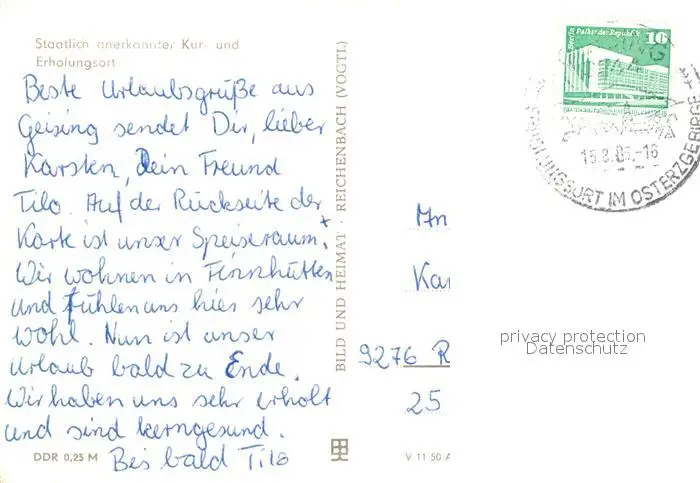 Staatlich anerkannter Kur- und
Erholungsort
Beste Urlaubsgrüße aus
Geising sendet Dir, lieber
Karsten, Dein Freund
Tilo. Auf der Rückseite der
Karte ist unser Speiseraum.
Wir wohnen in Finnhütten
und fühlen uns hier sehr
wohl. Nun ist unser
Urlaub bald zu Ende.
Wir haben uns sehr erholt
und sind kerngesund.
Bis bald Tilo
DDR 0,25 M
BILD UND HEIMAT REICHENBACH (VOGTL)
V 11 50/A
Berlin, Palast der Republik
16
ERHOLUNGSORT IM OSTERZGEBIRGE
An
Kar
9276 R
25
privacy protection
Datenschutz